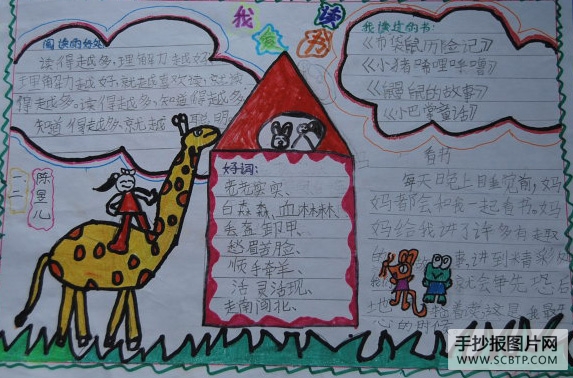 我爱读书
阅读的好处
读得越多,理解力越好
理解力越好,就越喜欢读,就读
得越多。读得越多,知道得越多
知道得越多,就越聪明
我读过的书:
《布袋鼠历险记》
《小猪唏哩呼噜》
《鼹鼠的故事》
《小巴掌童话》
一二
陈昱儿
好词:
老老实实、
白森森、血林林、
丢盔卸甲
愁眉苦脸、
顺手牵羊、
活灵活现、
走南闯北、
看书
每天晚上日睡觉前,妈
妈都会和我一起看书。妈
妈给我讲了许多有趣
的事,讲到精彩处
我就会争先恐后
地看,这是我最开
心的时候
手抄报图片网
WWW.SCBTP.COM